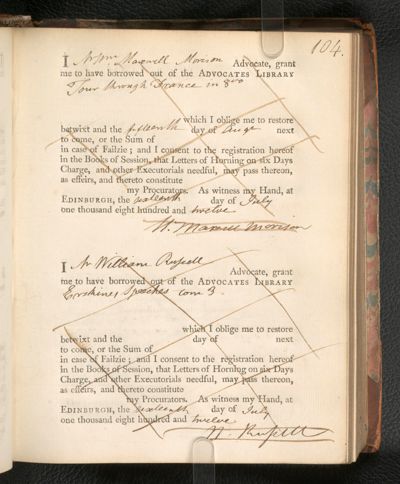 104.
I Mr Wm. Maxwell Morison Advocate, grant
me to have borrowed out of the ADVOCATES LIBRARY
Tour through France in 8vo
which I oblige me to restore
betwixt and the fifteenth day of Augt next
to come, or the Sum of
in case of Failzie; and I consent to the registration hereof
in the Books of Session, that Letters of Horning on six Days
Charge, and other Executorials needful, may pass thereon,
as effeirs, and thereto constitute
my Procurators. As witness my Hand, at
EDINBURGH, the sixteenth day of July
one thousand eight hundred and twelve
W. Maxwell Morison
I Mr William Russell Advocate, grant
me to have borrowed out of the ADVOCATES LIBRARY
Erskines Speeches tom 3.
which I oblige me to restore
betwixt and the day of next
to come, or the Sum of
in case of Failzie; and I consent to the registration hereof
in the Books of Session, that Letters of Horning on six Days
Charge, and other Executorials needful, may pass thereon,
as effeirs, and thereto constitute
my Procurators. As witness my Hand, at
EDINBURGH, the sixteenth day of July
one thousand eight hundred and twelve
W. Russell